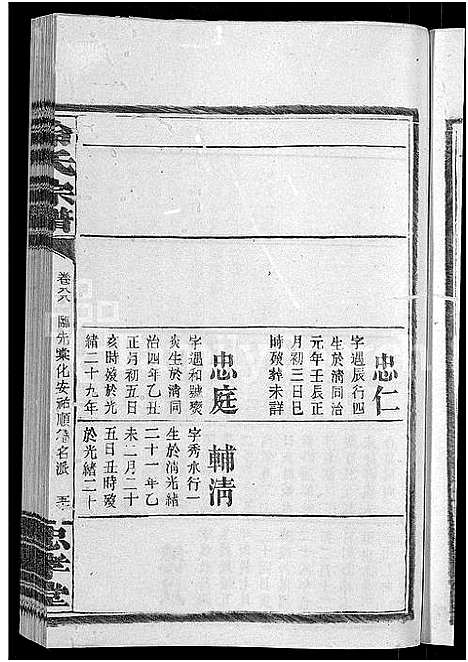 忠仁
字遇辰行四
生於淸同治
元年壬辰正
月初三日巳
時歿葬未詳
忠庭
字遇和號夔
炎生於淸同
治四年乙丑
正月初五日
亥時歿於光
緒二十九年
輔淸
字秀水行一
生於淸光緒
二十一年乙
未二月二十
五日丑時歿
於光緒二十
氏宗譜
卷六八
先業化安裕順公名派
五
忠孝堂